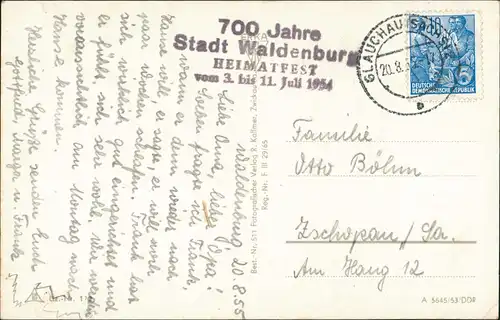 700 Jahre
Stadt Waldenburg
HEIMATFEST
vom 3. bis 11. Juli 1954
GLAUCHAU (SACHS)
20.8.
b
DEUTSCHE
DEMOKRATISCHE REPUBLIK
Waldenburg 20.8.55
Liebe Oma, lieber Opa!
Soeben frage ich Frank,
wann er denn wieder nach
Hause will er sagt, er will noch
paar Wochen schlafen. Frank hat
sich wirklich gut eingerichtet und
er fühlt sich sehr wohl. Wir werden
voraussichtlich am Montag nach
Hause kommen.
Herzliche Grüße senden Euch
Gottfried, u. Frank
Best.-Nr. 511 Fotografischer Verlag R. Kallmer, Zwickau
Reg.-Nr. F III 29/65
Familie
Otto Böhm
Zschopau/Sa.
Am Hang 12
A 5645/53/DDR